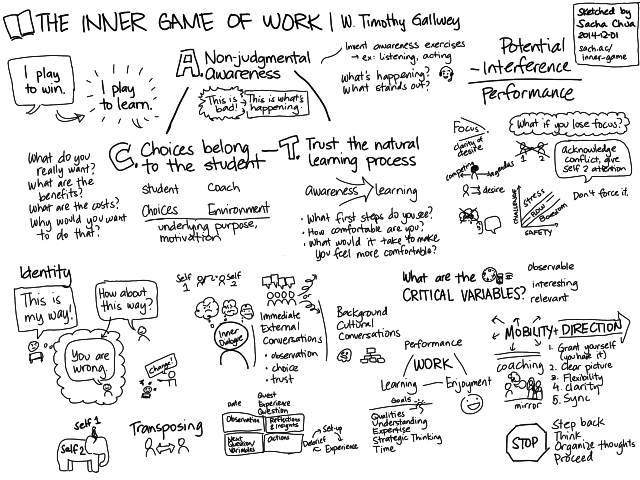 THE INNER GAME OF WORK | W. Timothy Gallwey
Sketched by
Sacha Chua
2014-12-01
sach.ac/
inner-game
I play
to win.
I play
to learn.
A. Non-judgmental
awareness
Invent awareness exercises
→ ex: listening, acting
What's happening?
What stands out?
This is
bad!
This is what's
happening.
Potential
- Interference
Performance
What do you
really want?
What are the
benefits?
What are the costs?
Why would you want
to do that?
C. Choices belong
to the student
student Coach
Choices Environment
underlying purpose,
motivation
T. Trust the natural
learning process
awareness learning
• What first steps do you see?
• How comfortable are you?
• What would it take to make
you feel more comfortable?
Focus:
clarity of
desire
competing
agendas
desire
What if you lose focus?
1 2
Acknowledge
conflict, give
Self 2 attention
Don't force it.
CHALLENGE
STRESS
FLOW
BOREDOM
SAFETY
Identity
This is
my way!
How about
this way?
You are
wrong.
Change!
Self
1
Self
2
Inner
Dialogue
Immediate
External
Conversations
• observation
• choice
• trust
or
Background
Cultural
Conversations
What are the
CRITICAL VARIABLES?
observable
interesting
relevant
Performance
WORK
Learning Enjoyment
Goals
Qualities
Understanding
Expertise
Strategic Thinking
Time
MOBILITY + DIRECTION
coaching
mirror
1. Grant yourself
(you have it)
2. Clear picture
3. Flexibility
4. clarity
5. Sync
Self 1
Self 2
Transposing
Date
Quest
Experience
Question
Observation
Reflections
& Insights
Next
Question/
Variables
Actions
Set-up
Experience
Debrief
STOP
Step back
Think
Organize thoughts
Proceed